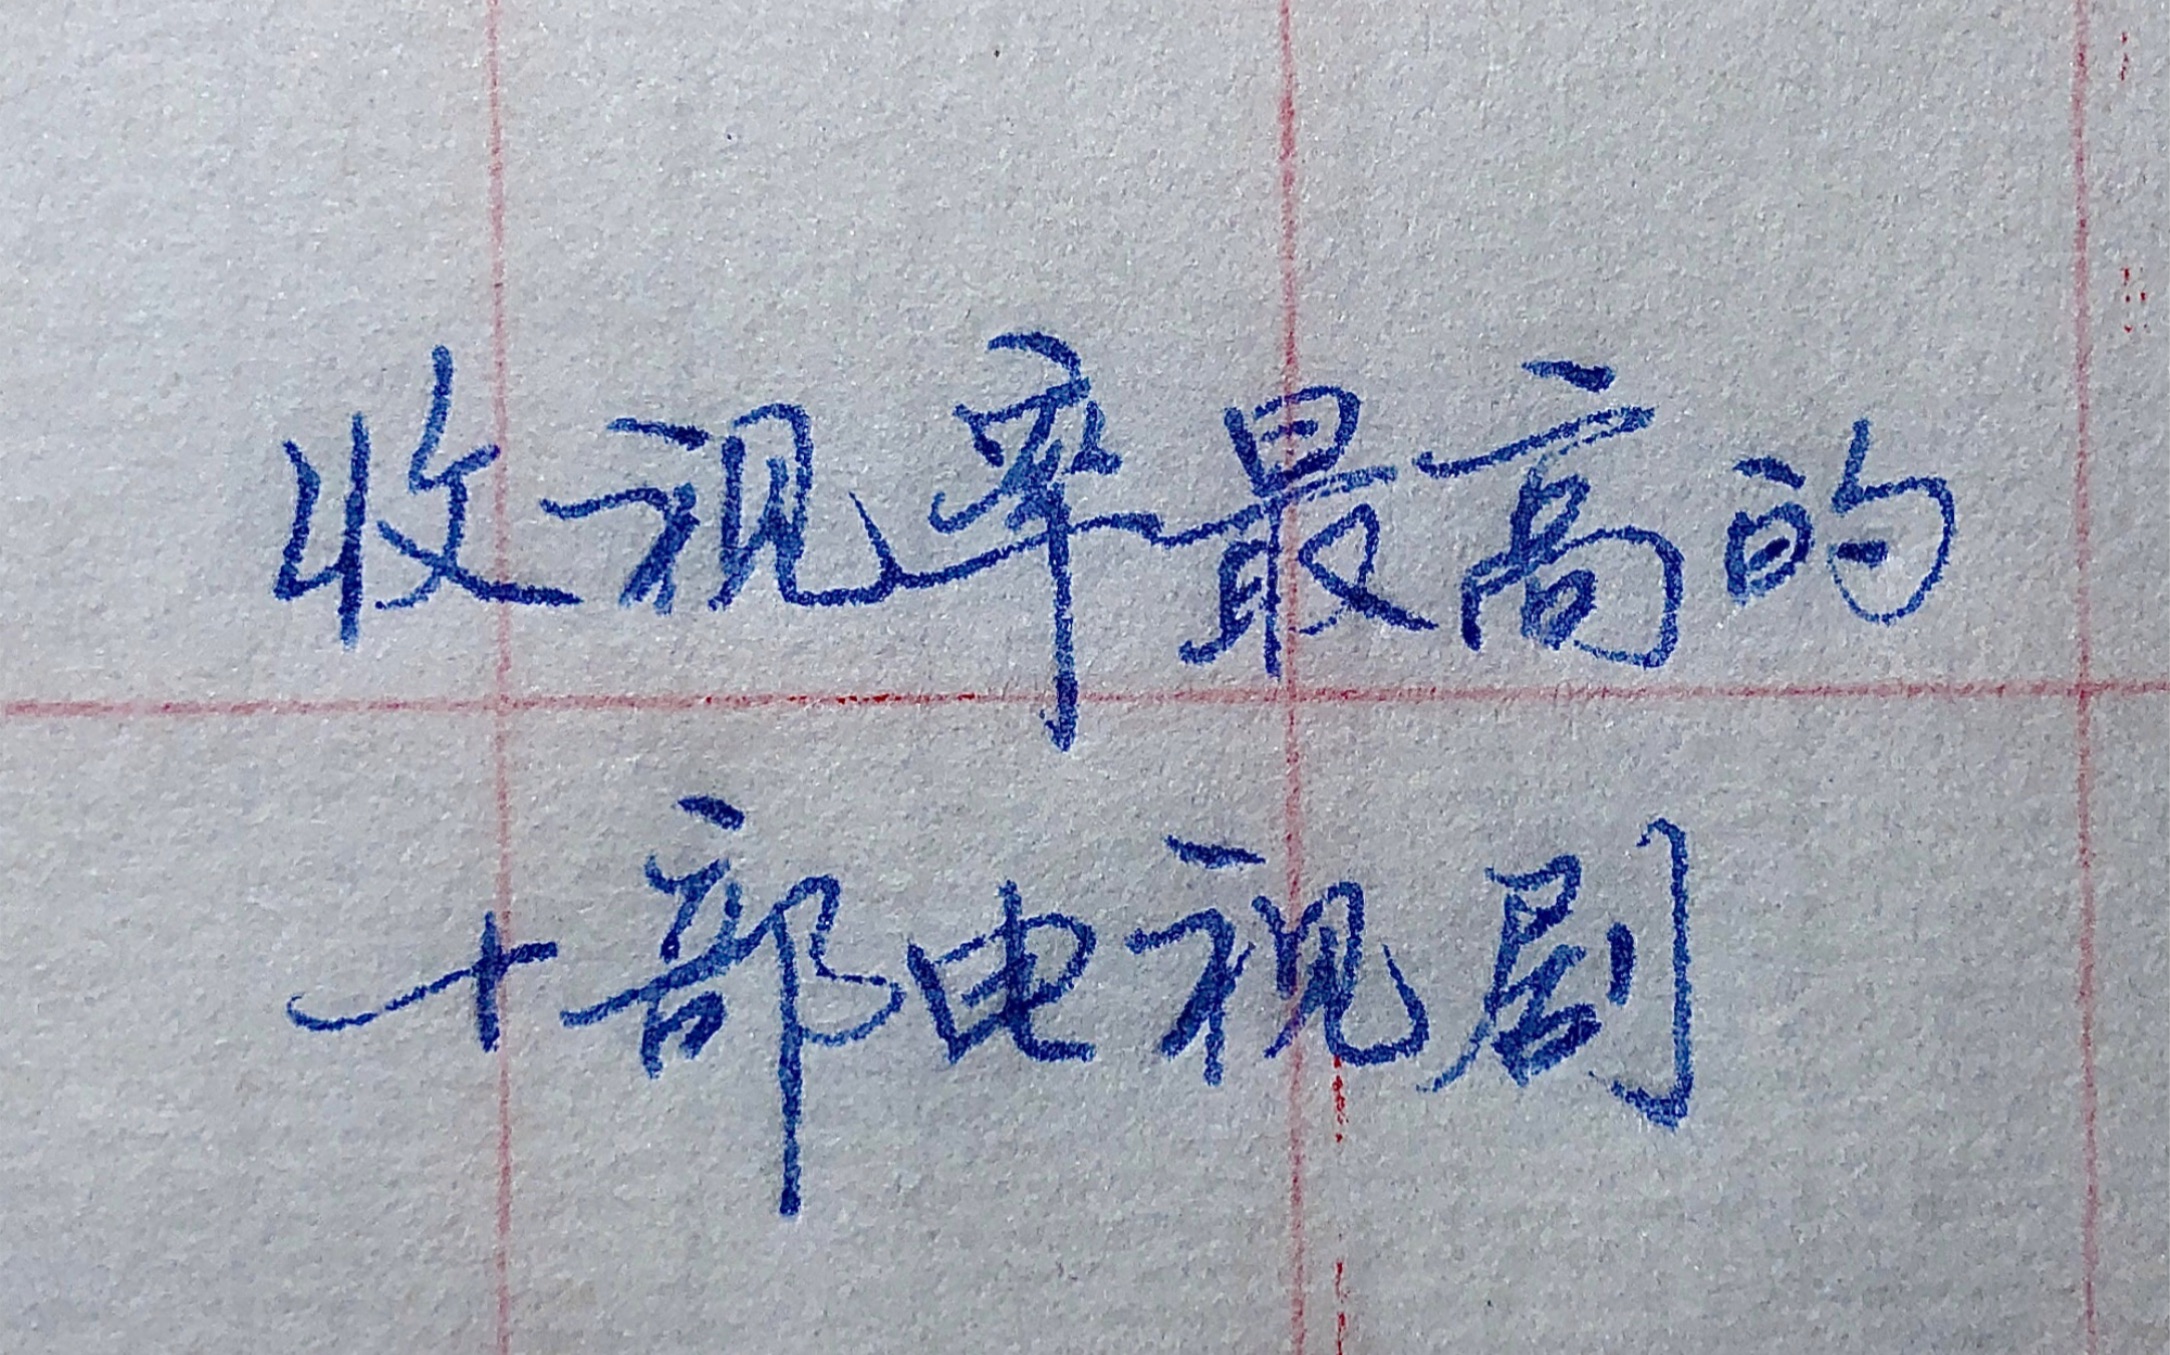 收视率最高的
十部电视剧